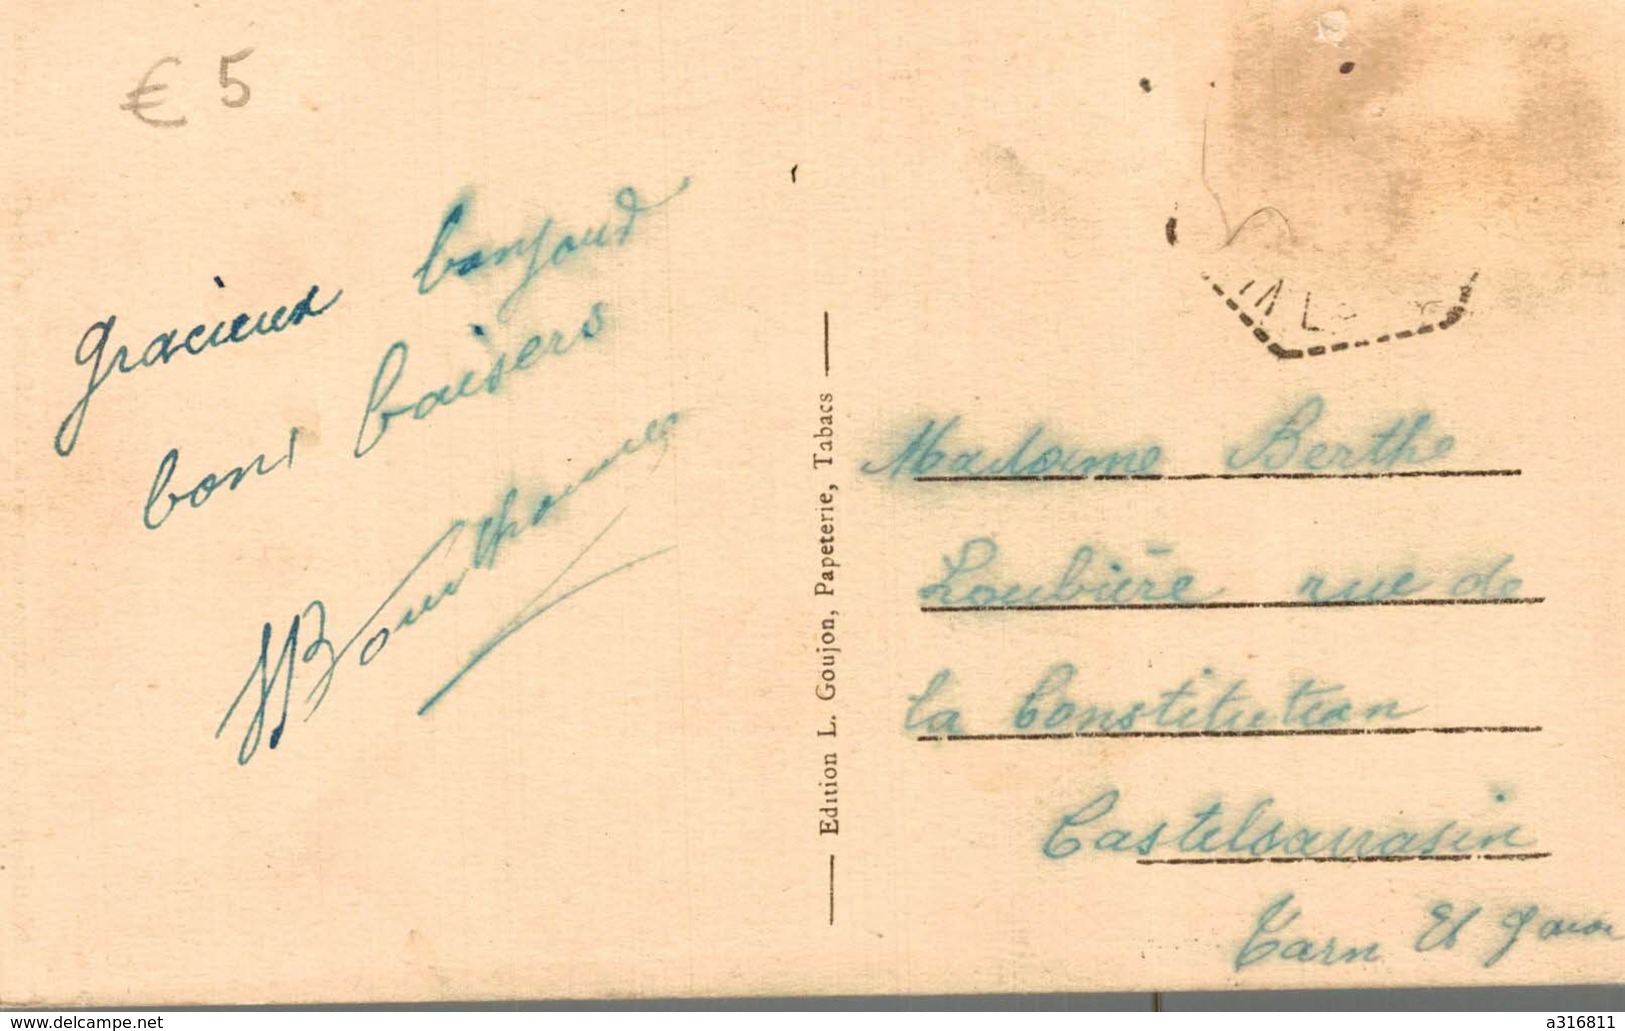 € 5
gracieux bonjour
bons baisers
Edition L. Goujon, Papeterie, Tabacs
Madame Berthe
Loubière rue de
la Constitution
Castelsarrasin
Tarn Et Garon
www.delcampe.net
a316811